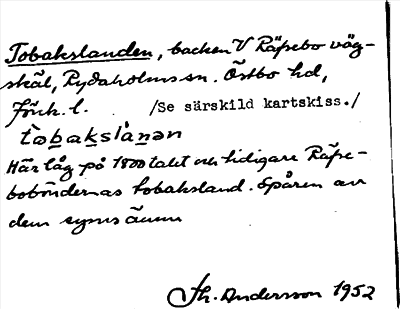 Tobakslanden, backen V Räpebo väg-
skäl, Rydaholms sn. Östbo hd,
Jönk. l. /Se särskild kartskiss./
tobakslànən
Här låg på 1800 talet och tidigare Räpe-
boböndernas tobaksland. Spåren av
dem synes ännu
Th. Andersson 1952